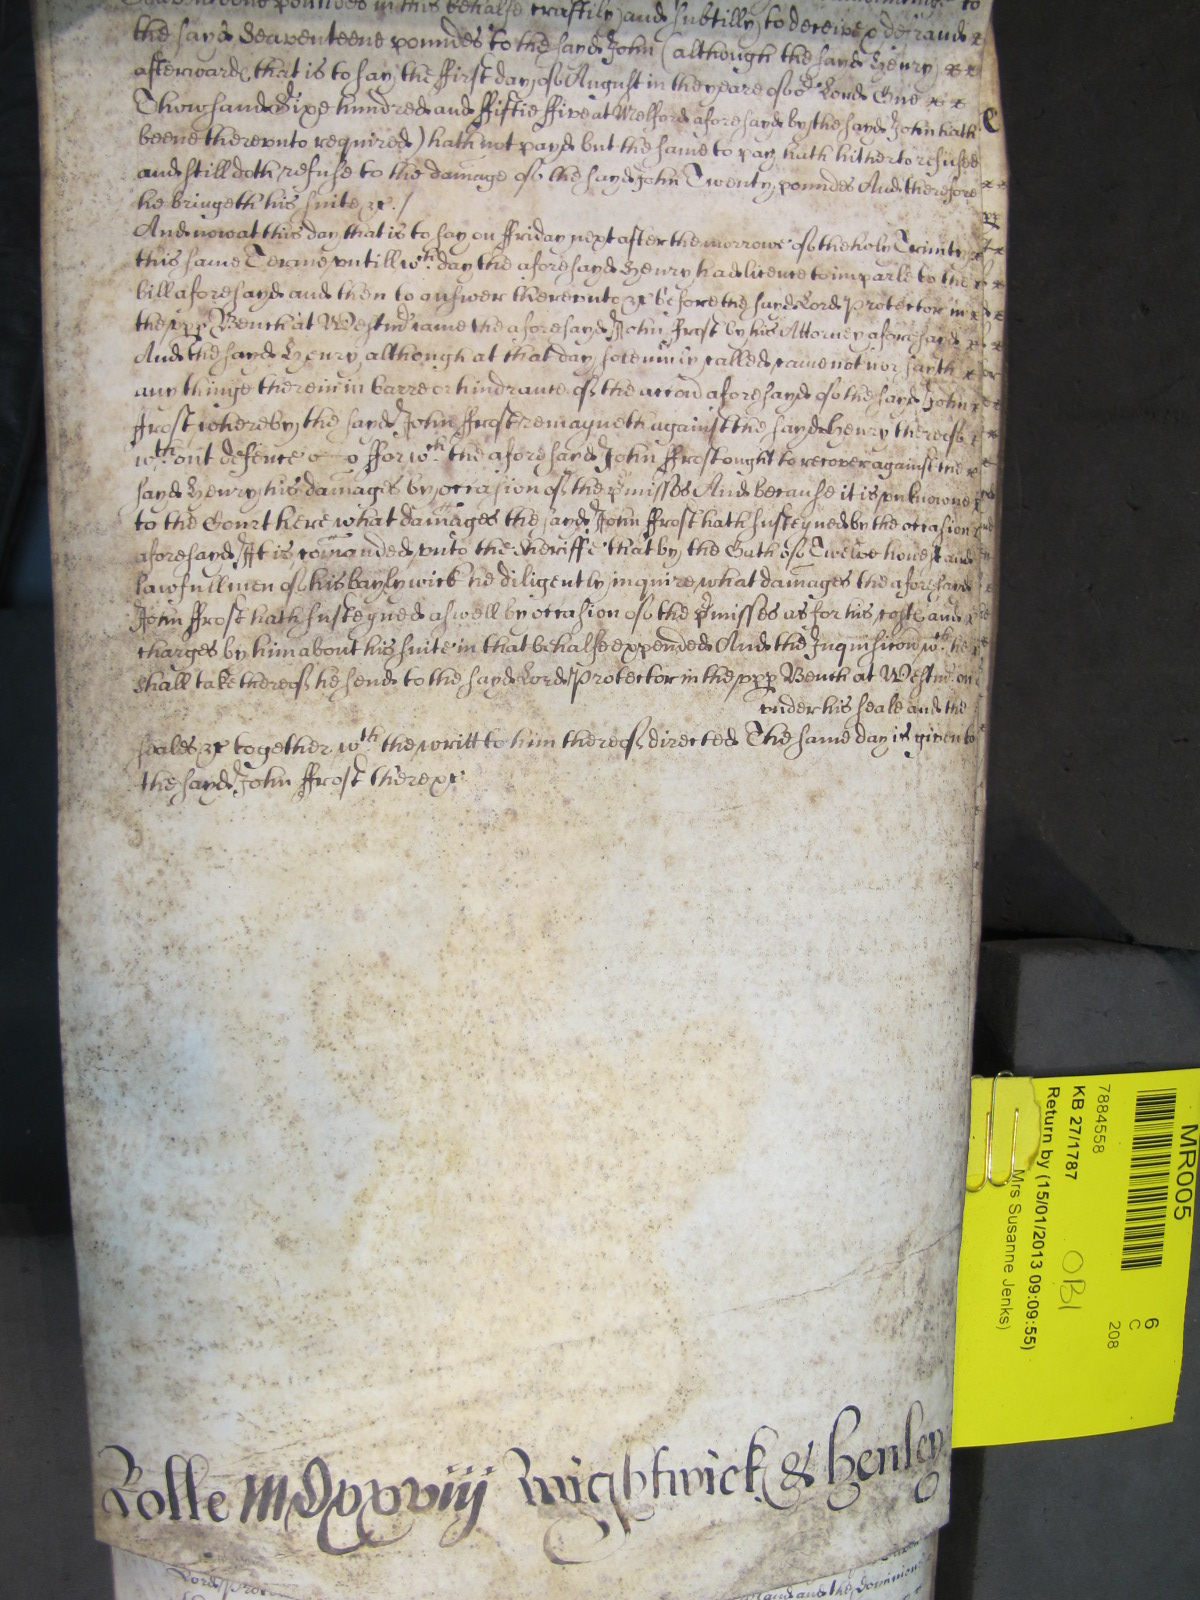 pounds in this behalfe craftily and subtilly to deceive & defraude
the sayd Seaventeene poundes to the sayd John (although the sayd Henry
afterward that is to say the ffirst day of August in the yeare of or Lord One
Thowsand Sixe hundred and ffiftie ffive at Melford aforesayd by the sayd John hath
beene therevnto required) hath not payd but the same to pay hath hitherto refused
and still doth refuse to the damage of the sayd John Twenty poundes And therefore
he bringeth his suite &c. /
And now at this day that is to say on ffriday next after the morrowe of the holy Trinity
this same Terme vntill wch. day the aforesayd Henry had licence to imparle to the
bill aforesayd and then to answer therevnto &c before the sayd Lord Protector in
the vpp Bench at Westmr came the aforesayd John ffrost by his Attorney aforesayd
And the sayd Henry although at that day solemnly called came not nor sayth
any thinge therein in barre or hindrance of the accon aforesayd of the sayd John
ffrost whereby the sayd John ffrost remayneth against the sayd Henry thereof
wthout defence &c ffor wch the aforesayd John ffrost ought to recover against the
sayd Henry his damages by occasion of the pmisses And because it is vnknowne
to the Court here what damages the sayd John ffrost hath susteyned by the occasion
aforesayd It is comanded vnto the Sheriffe that by the Oath of Twelve honest and
lawfull men of his baylywick he diligently inquire what damages the aforesayd
John ffrost hath susteyned aswell by occasion of the pmisses as for his costs and
charges by him about his suite in that behalfe expended And the Inquisicon wch. he
shall take thereof he send to the sayd Lord Protector in the vpp Bench at Westmr. on
vnder his seale and the
seales &c together wth. the writt to him thereof directed The same day is given to
the sayd John ffrost there &c
Rolle MDxxviij Wightwick & Henley
Lord Protec
land and the Dominion
MR005
6
C
208
7884558
KB 27/1787
OB1
Return by (15/01/2013 09:09:55)
Mrs Susanne Jenks)